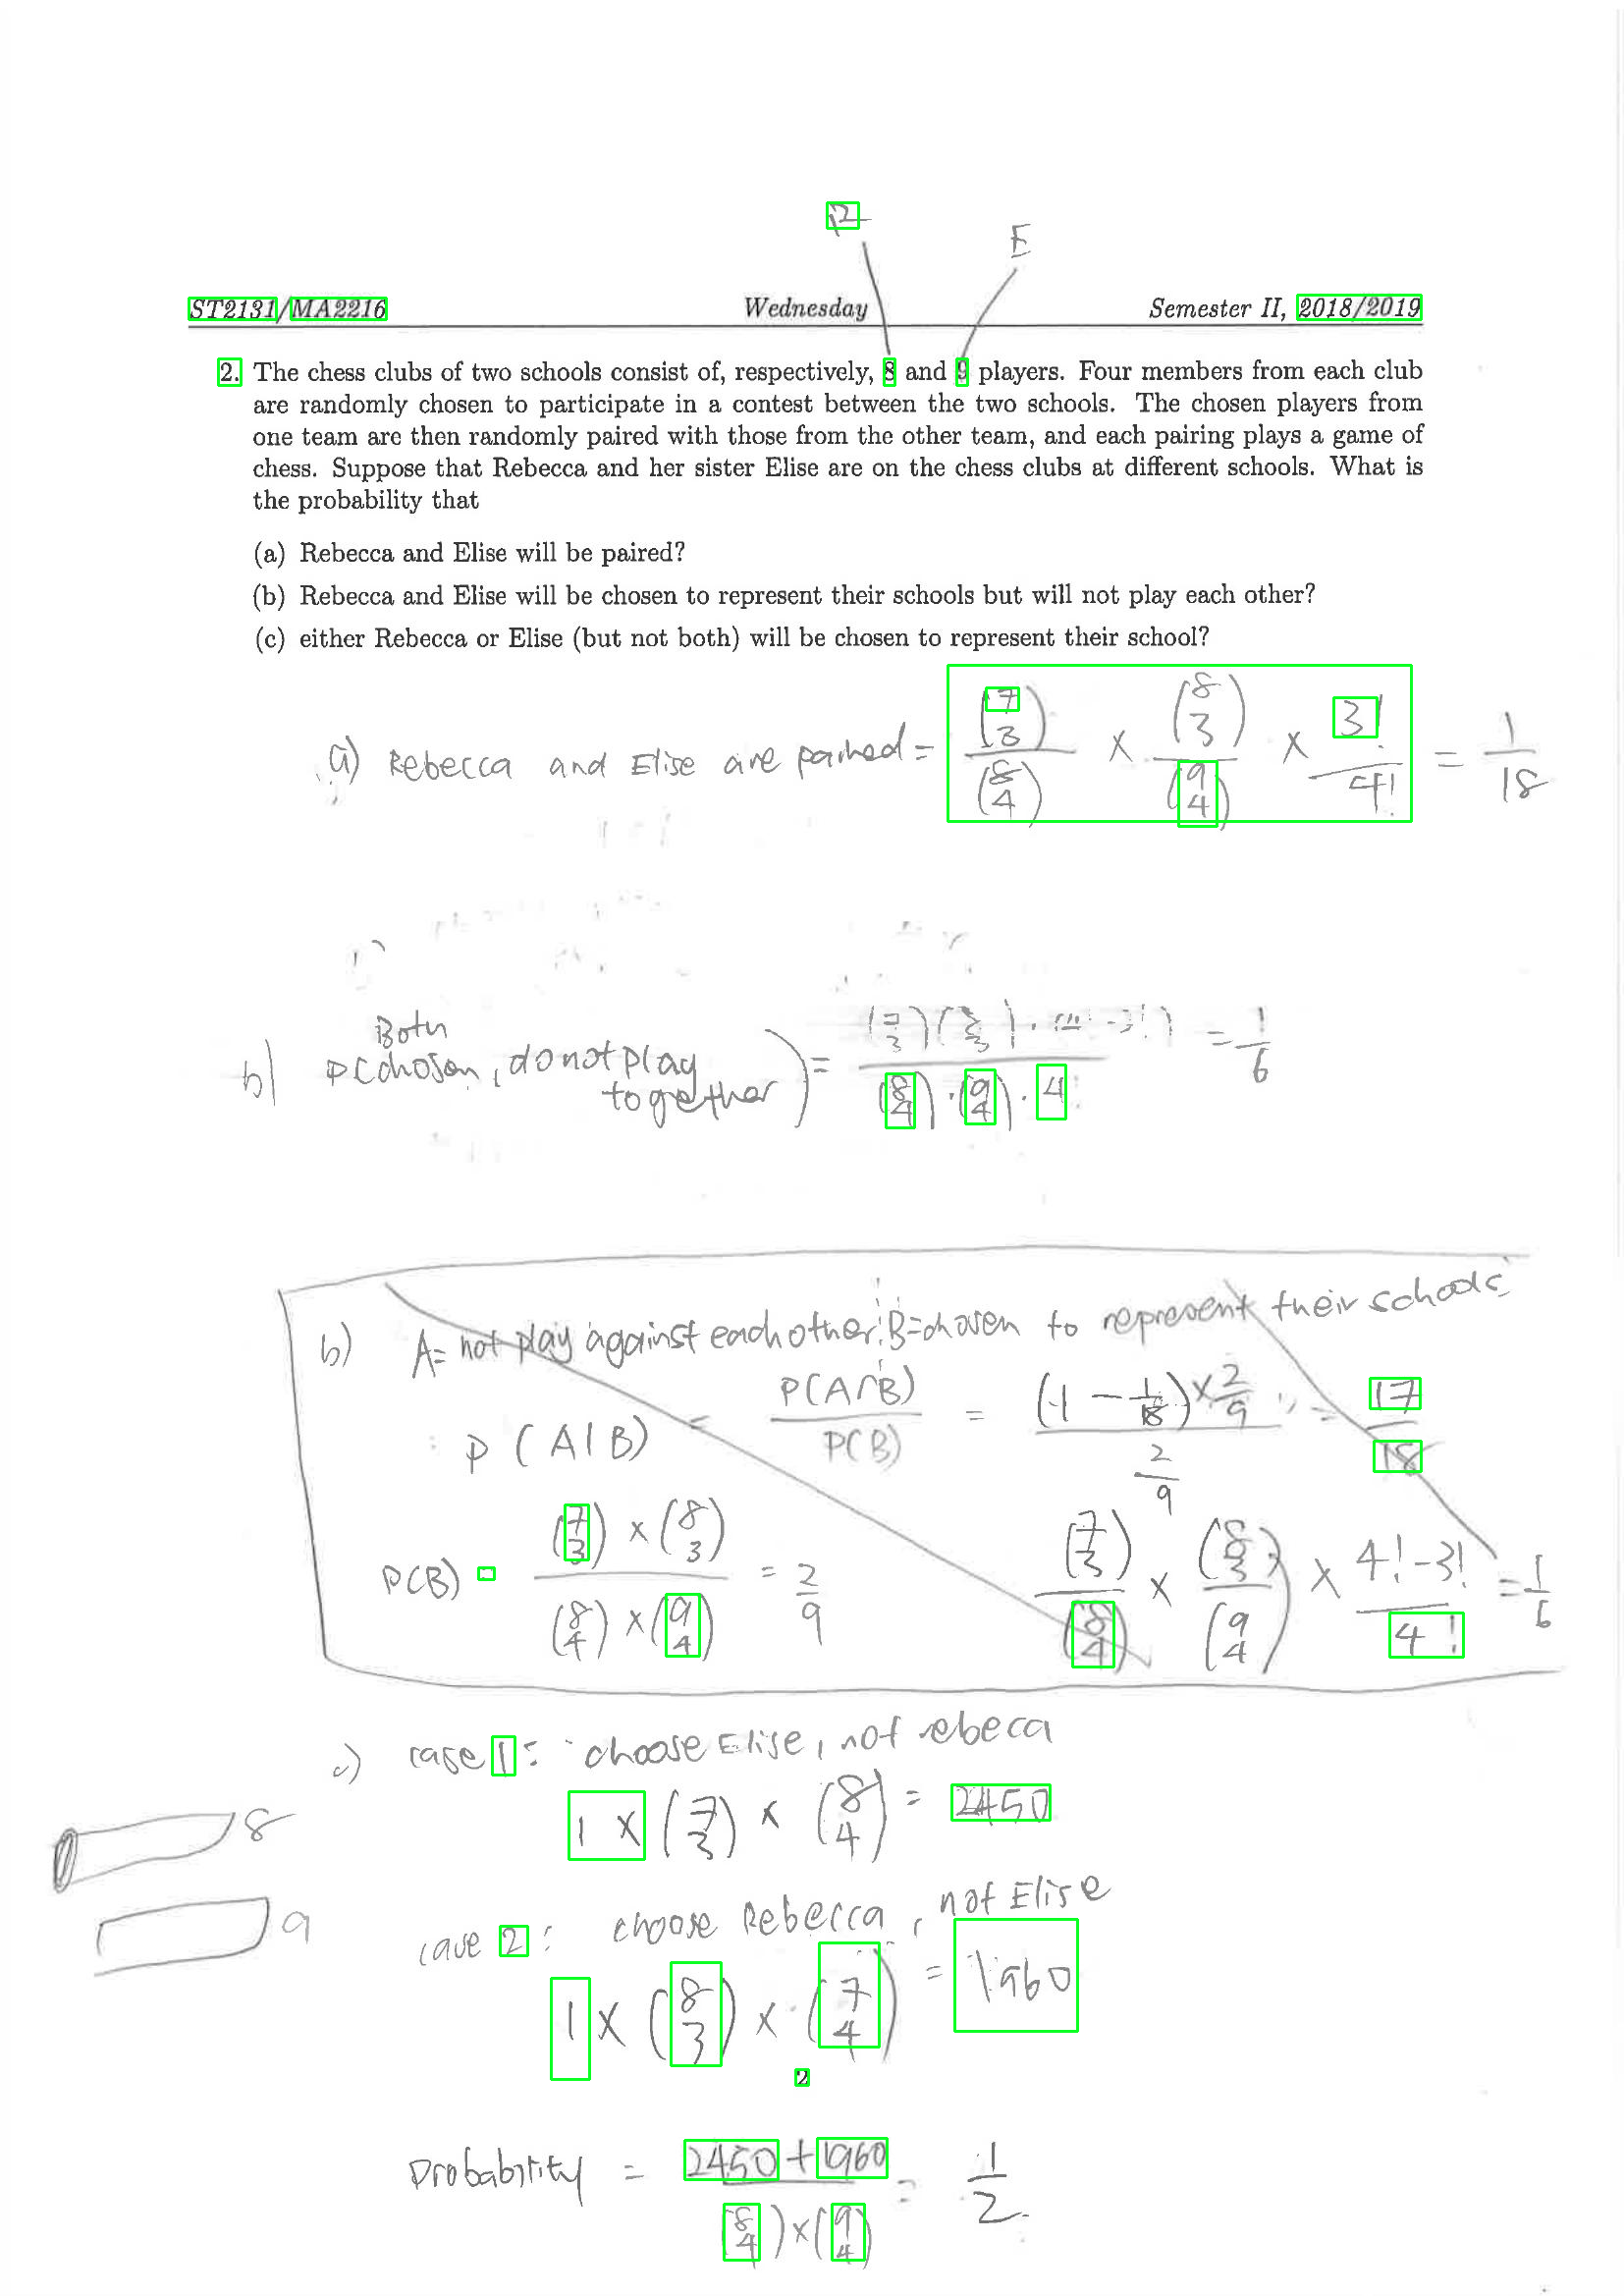 R
E
ST2131/MA2216 Wednesday Semester II, 2018/2019
2. The chess clubs of two schools consist of, respectively, 8 and 9 players. Four members from each club
are randomly chosen to participate in a contest between the two schools. The chosen players from
one team are then randomly paired with those from the other team, and each pairing plays a game of
chess. Suppose that Rebecca and her sister Elise are on the chess clubs at different schools. What is
the probability that
(a) Rebecca and Elise will be paired?
(b) Rebecca and Elise will be chosen to represent their schools but will not play each other?
(c) either Rebecca or Elise (but not both) will be chosen to represent their school?
a) Rebecca and Elise are paired = (7 3)/(8 4) × (8 3)/(9 4) × 3!/4! = 1/18
b) P(Both chosen, do not play together) = (7 3)(8 3)·(4!-3!) / (8 4)·(9 4)·4! = 1/6
b) A= not play against each other. B=chosen to represent their schools
P(A|B) = P(A∩B)/P(B) = (1 - 1/18)×2/9 / 2/9 = 17/18
P(B) = (7 3) × (8 3) / (8 4) × (9 4) = 2/9
(7 3)/(8 4) × (8 3)/(9 4) × 4!-3!/4! = 1/6
c) case 1: choose Elise, not rebeca
1 × (7 3) × (8 4) = 2450
8
case 2: choose Rebecca, not Elise
9
1 × (8 3) × (7 4) = 1960
2
Probability = 2450+1960 / (8 4)×(9 4) = 1/2